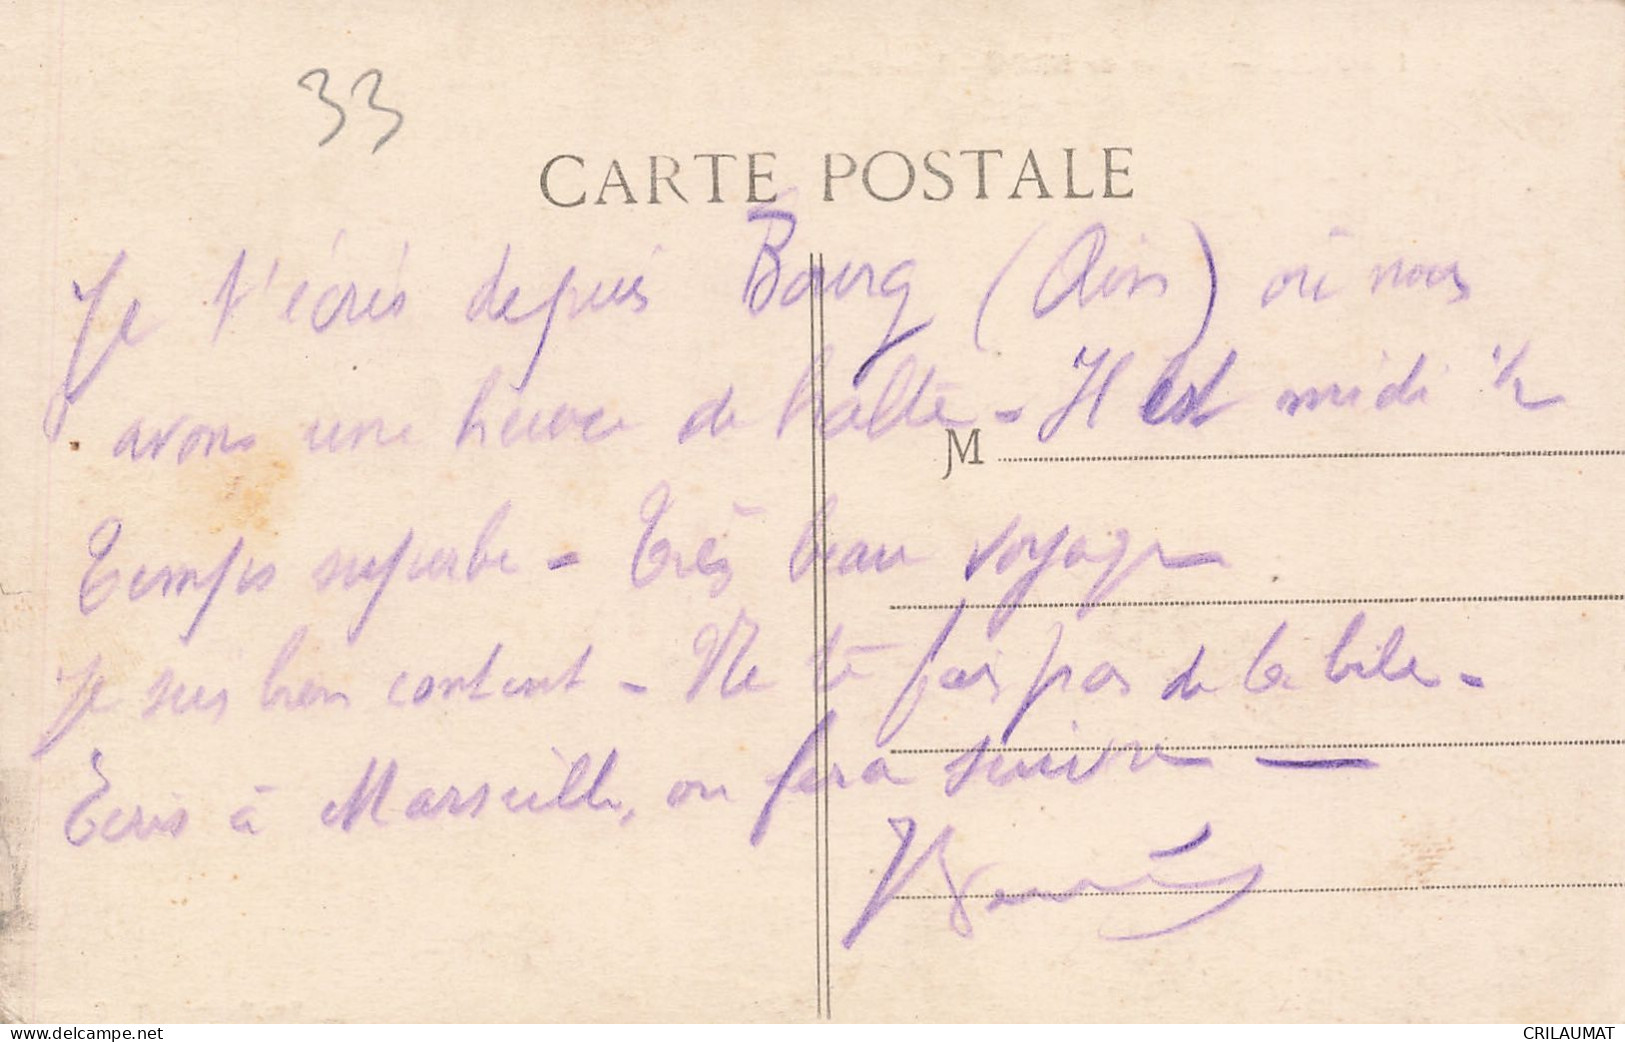 33
CARTE POSTALE
Je t'écris depuis Bourg (Ain) où nous
avons une heure de halte - Il est midi ½
M
Temps superbe - Très beau voyage
Je suis bien content - Ne te fais pas de la bile -
Ecris à Marseille, on fera suivre —
www.delcampe.net
CRILAUMAT